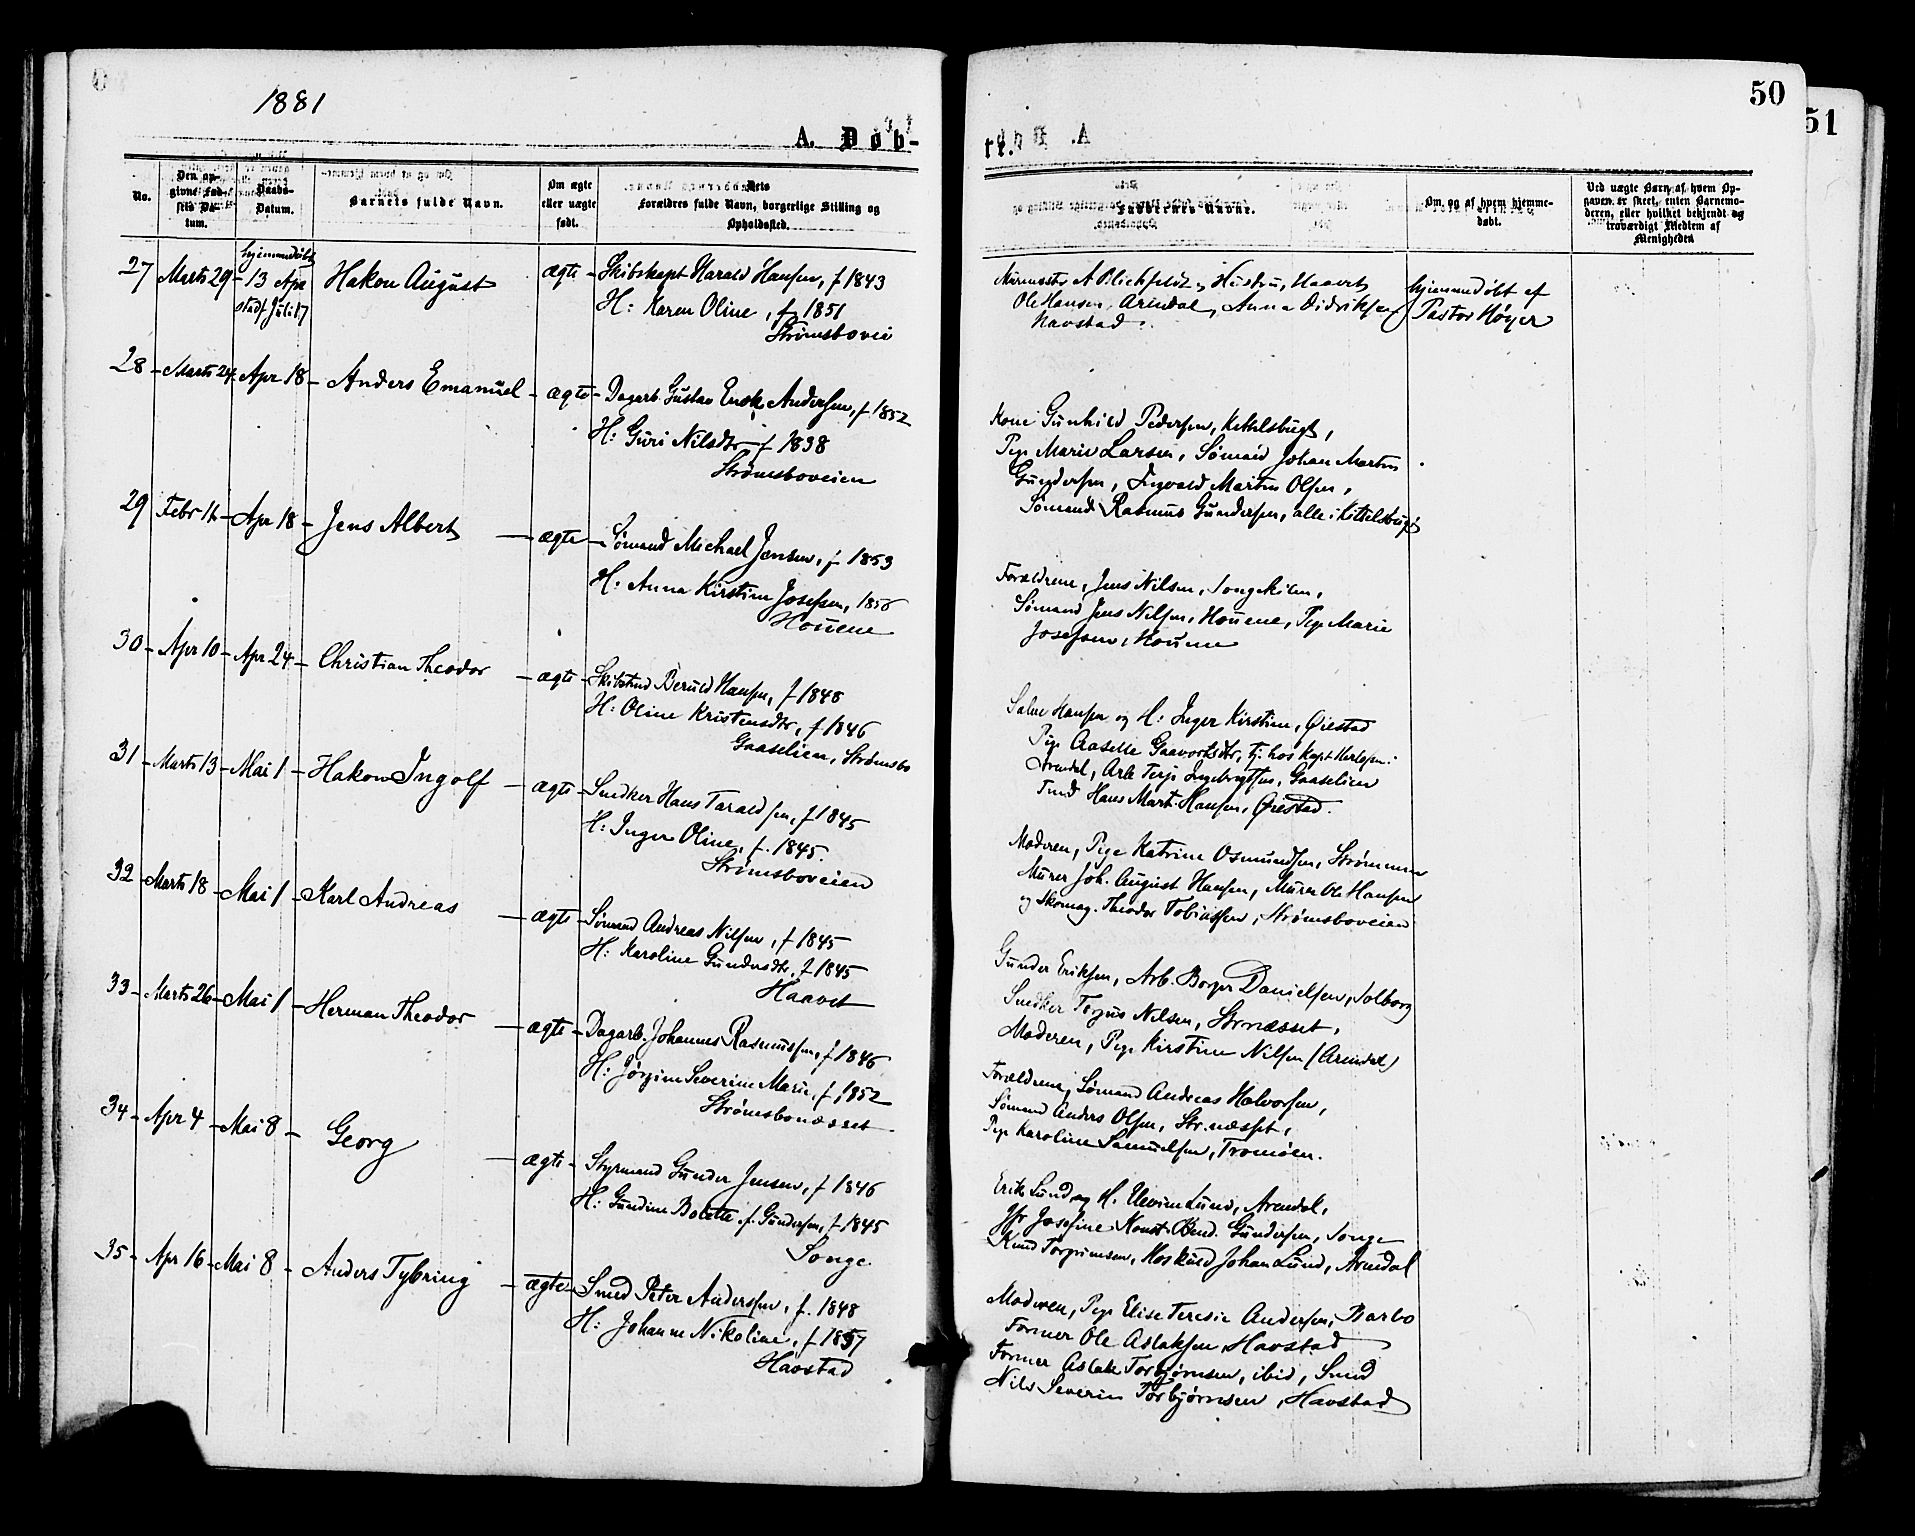 1881
50
51
A. Døb-
te.
No.
Den op-
givne Fød-
sels Da-
tum.
Daabs-
Datum.
Barnets fulde Navn.
Om ægte
eller uægte
født.
Dets
Forældres fulde Navn, borgerlige Stilling og
Opholdssted.
Faddernes Navne.
Om og af hvem hjemme-
døbt.
Ved uægte Børn af hvem Op-
gaven er skeet, enten Barnemo-
deren, eller hvilket bekjendt og
troværdigt Medlem af
Menigheden
27 Marts 29 - hjemmedøbt 13 Apr stadf Juli 17 Hakon August ægte - Skibskapt Harald Hansen, f 1843
H: Karen Oline, f 1851
Strømsbovei
Murmester A Blichfeldt og Hustru, Haavet
Ole Hansen, Arendal, Anna Didriksen
Havstad.
hjemmedøbt af
Pastor Høyer
28 - Marts 24 - Apr 18 - Anders Emanuel - ægte - Dagarb. Gustav Ensk. Andersen, f 1852
H: Guri Nilsdtr f 1838
Strømsboveien
Kone Gunhild Pedersen, Kittelsbugt,
Pige Marie Larsen, Sømand Johan Martin
Gundersen, Ingvald Martin Olsen,
Sømand Rasmus Gundersen, alle i Kittelsbugt
29 Febr 16 - Apr 18 - Jens Albert - ægte - Sømand Michael Jensen, f 1853
H: Anna Kirstine Josefsen, 1856
Houene
Forældrene, Jens Nilsen, Songekilen,
Sømand Jens Nilsen, Houene, Pige Marie
Josefsen, Houene
30 - Apr 10 - Apr 24 - Christian Theodor - ægte - Skibstmd Beruld Hansen, f 1848
H: Oline Kristensdtr, f 1846
Gaaselien, Strømsbo
Salve Hansen og H: Inger Kirstine, Øiestad
Pige Aaselle Gaavortsdtr, tj. hos Kapt Herlofsen
Arendal, Arb Terje Ingebrigtsen, Gaaselien
Tmd Hans Mart. Hansen, Øiestad.
31 - Marts 13 - Mai 1 - Hakon Ingolf - ægte - Snedker Hans Taraldsen, f 1845
H: Inger Oline, f. 1845.
Strømsboveien
Moderen, Pige Katrine Osmundsen, Strømmen
Murer Joh. August Hansen, Murer Ole Hansen
og Skomag. Theodor Tobiassen, Strømsboveien
32 - Marts 18 - Mai 1 - Karl Andreas - ægte - Sømand Andreas Nilsen, f 1845
H: Karoline Gundersdtr, f 1845
Haavet
Gunder Eriksen, Arb. Borger Danielsen, Solborg
Snedker Torjus Nilsen, Strnæsset,
Moderen, Pige Kirstine Nilsen (Arendal)
33 - Marts 26 - Mai 1 - Herman Theodor - ægte - Dagarb. Johannes Rasmussen, f 1846
H: Jørgine Severine Marie, f 1852
Strømsbonæsset
Forældrene, Sømand Andreas Halvorsen,
Sømand Anders Olsen, Str.næsset,
Pige Karoline Samuelsen, Tromøen.
34 - Apr 4 - Mai 8 - Georg - ægte - Styrmand Gunder Jensen, f 1846
H: Gundine Bolette f. Gundersen, f 1845
Songe
Erik Lund og H. Lund, Arendal,
Jfr Josefine Gundersen, Songe
Knud Torgrimsen, Johan Lund, Arendal
35 - Apr 16 - Mai 8 - Anders Tybring - ægte - Smed Peter Anderssen, f. 1848
H: Johanne Nikoline, f 1857
Havstad
Moderen, Pige Elise Teresie Andersen, Barbo
Former Ole Aslaksen, Havstad
Former Aslak Torbjørnsen, ibid, Smed
Nils Severin Torbjørnsen, Havstad